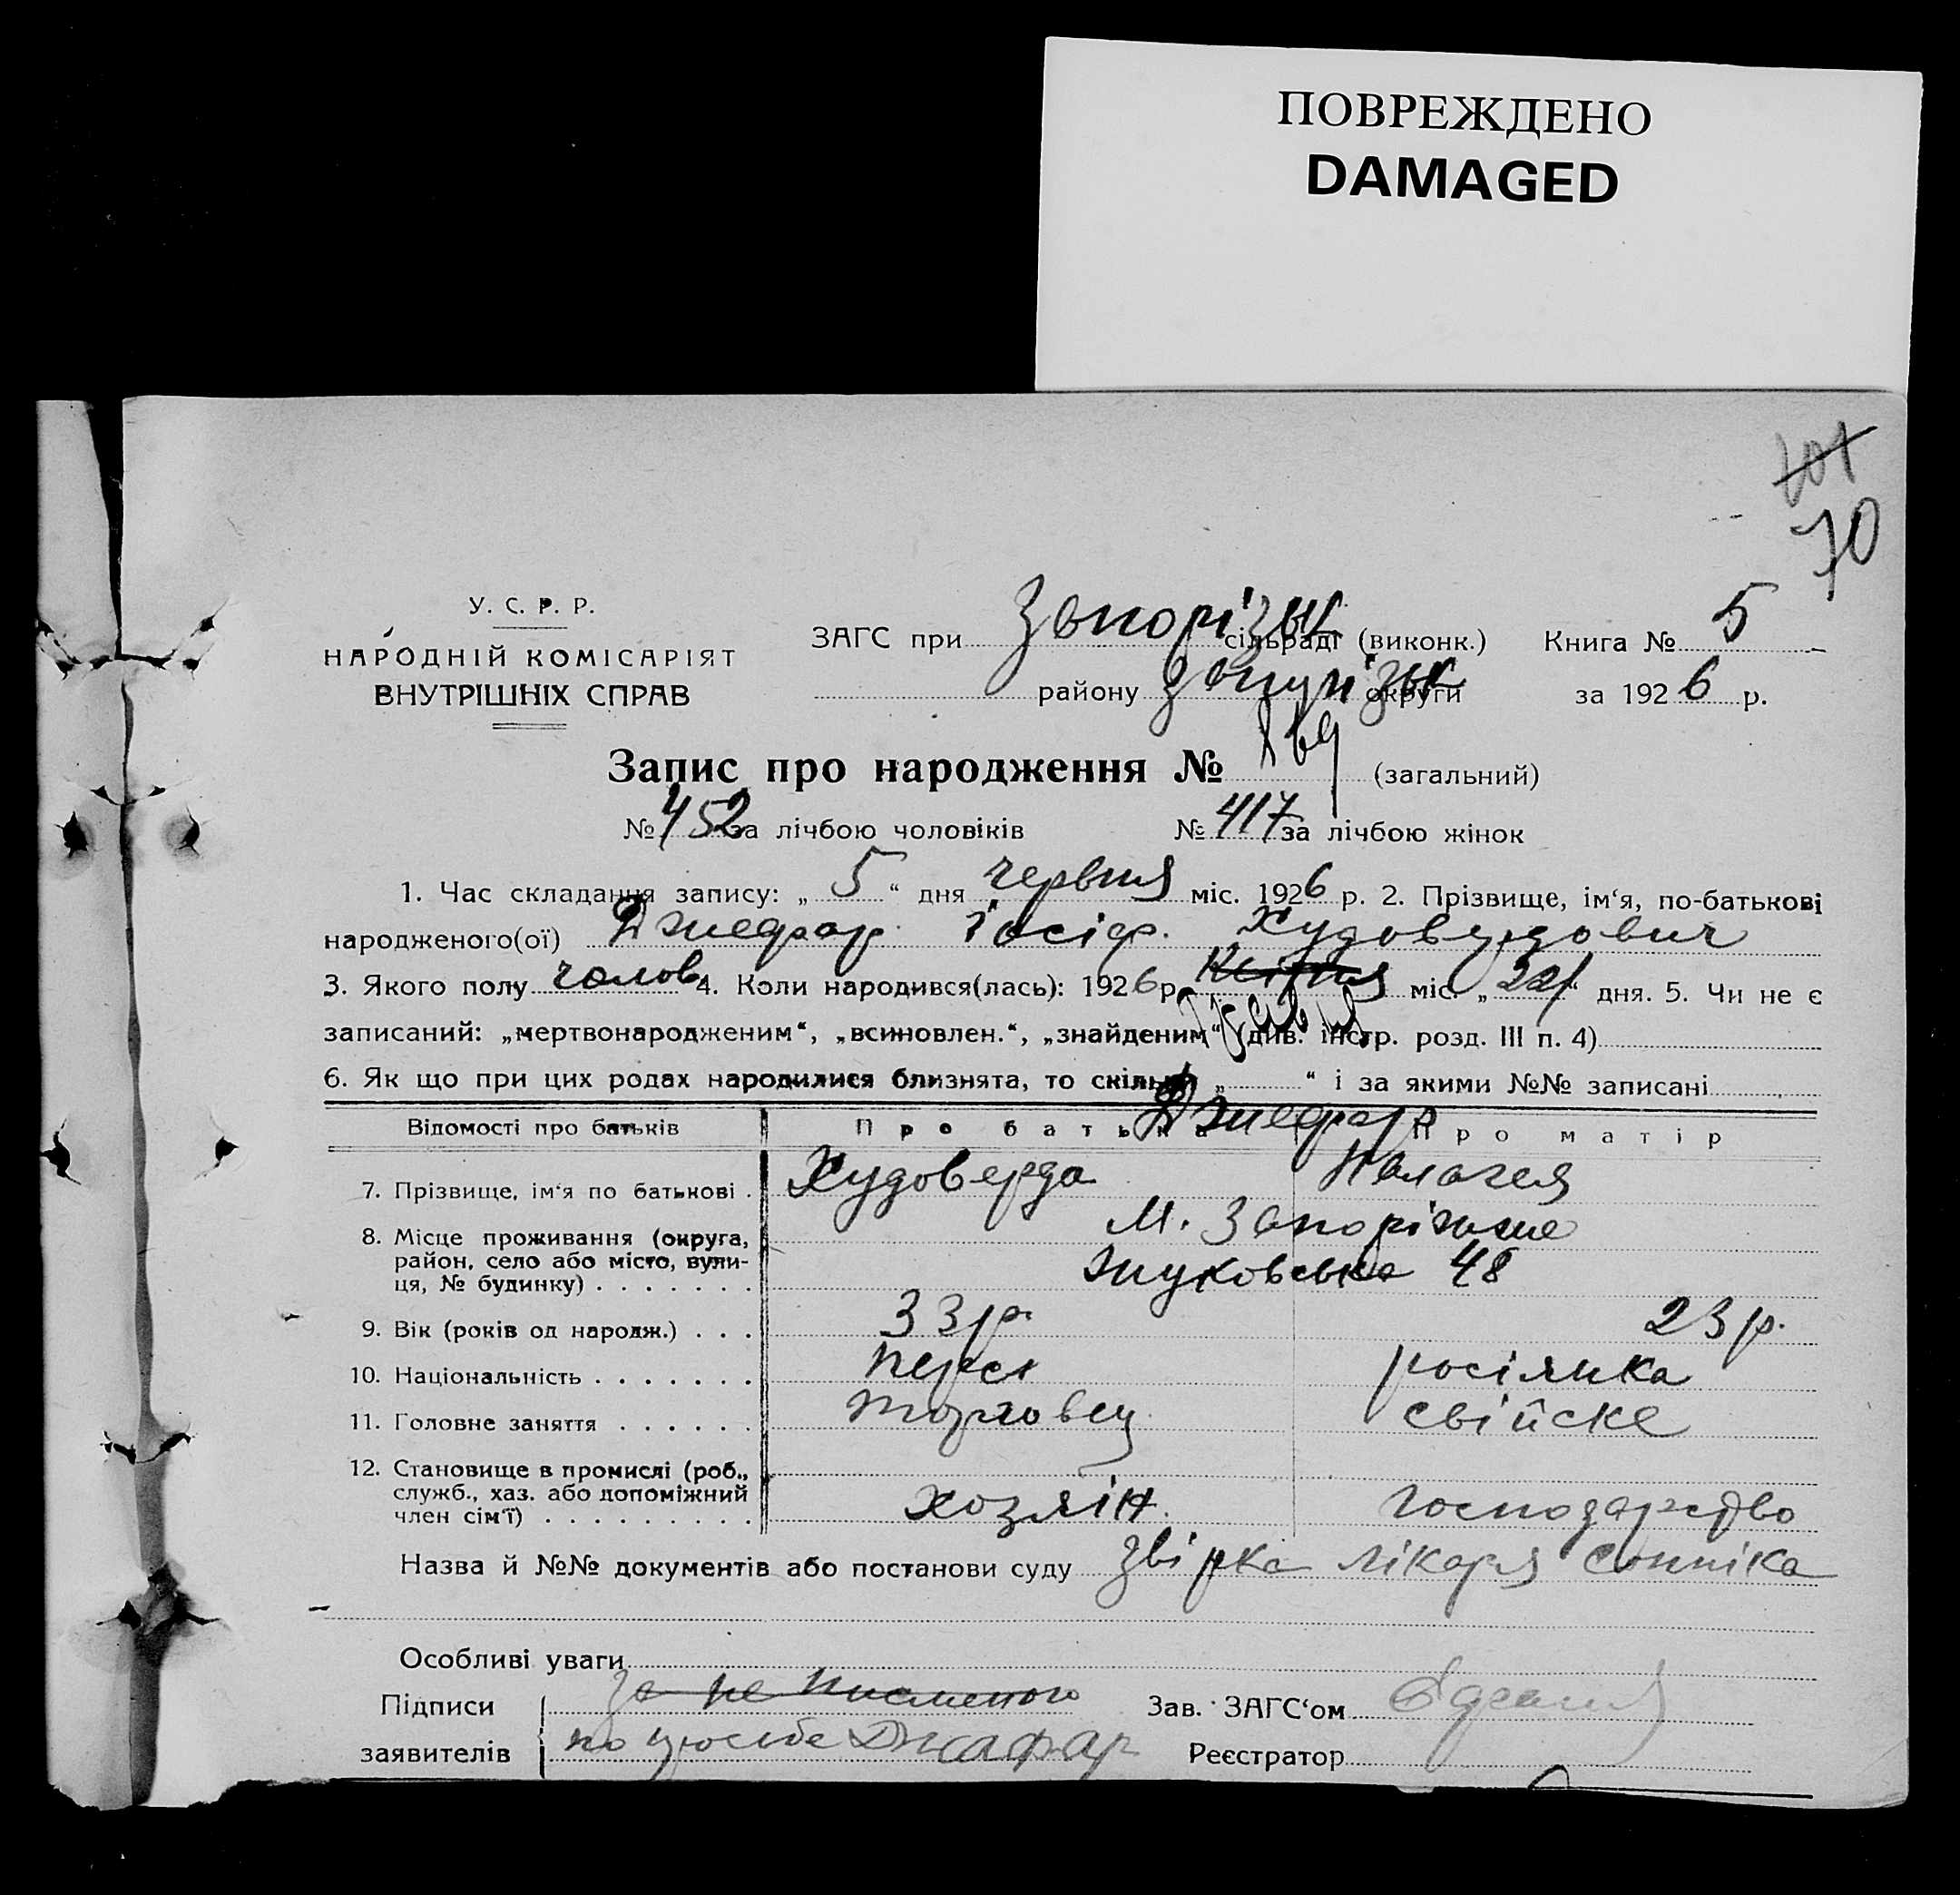 ПОВРЕЖДЕНО
DAMAGED
101
70
У. С. Р. Р.
НАРОДНІЙ КОМІСАРІЯТ
ВНУТРІШНІХ СПРАВ
ЗАГС при Запорізьк сільраді (виконк.) Книга № 5
району Запорізьк округи за 1926 р.
Запис про народження № 869 (загальний)
№ 452 за лічбою чоловіків № 417 за лічбою жінок
1. Час складання запису: „ 5 “ дня червня міс. 1926 р. 2. Прізвище, ім‘я, по-батькові
народженого(ої) Джефар Іосіф Худовердович
3. Якого полу чолов 4. Коли народився(лась): 1926 р. міс. „ “ дня. 5. Чи не є
травня
записаний: „мертвонародженим“, „всиновлен.“, „знайденим“ (див. інстр. розд. III п. 4)
6. Як що при цих родах народилися близнята, то скільки „ “ і за якими №№ записані
Відомості про батьків Про батька Про матір
Джефар
7. Прізвище, ім‘я по батькові . Худоверда Палагея
8. Місце проживання (округа, район, село або місто, вулиця, № будинку) . . . . . . . м. Запоріжже
Жуковська 48
9. Вік (років од народж.) . . . 33 р. 23 р.
10. Національність . . . . . . . перс росіянка
11. Головне заняття . . . . . . торговец свійске
12. Становище в промислі (роб., служб., хаз. або допоміжний член сім‘ї) . . . . . . . . . хозяїн. господарство
Назва й №№ документів або постанови суду звірка лікаря
Особливі уваги
Підписи за не писменого Зав. ЗАГС‘ом
заявителів по прозьбе Джафар Реєстратор